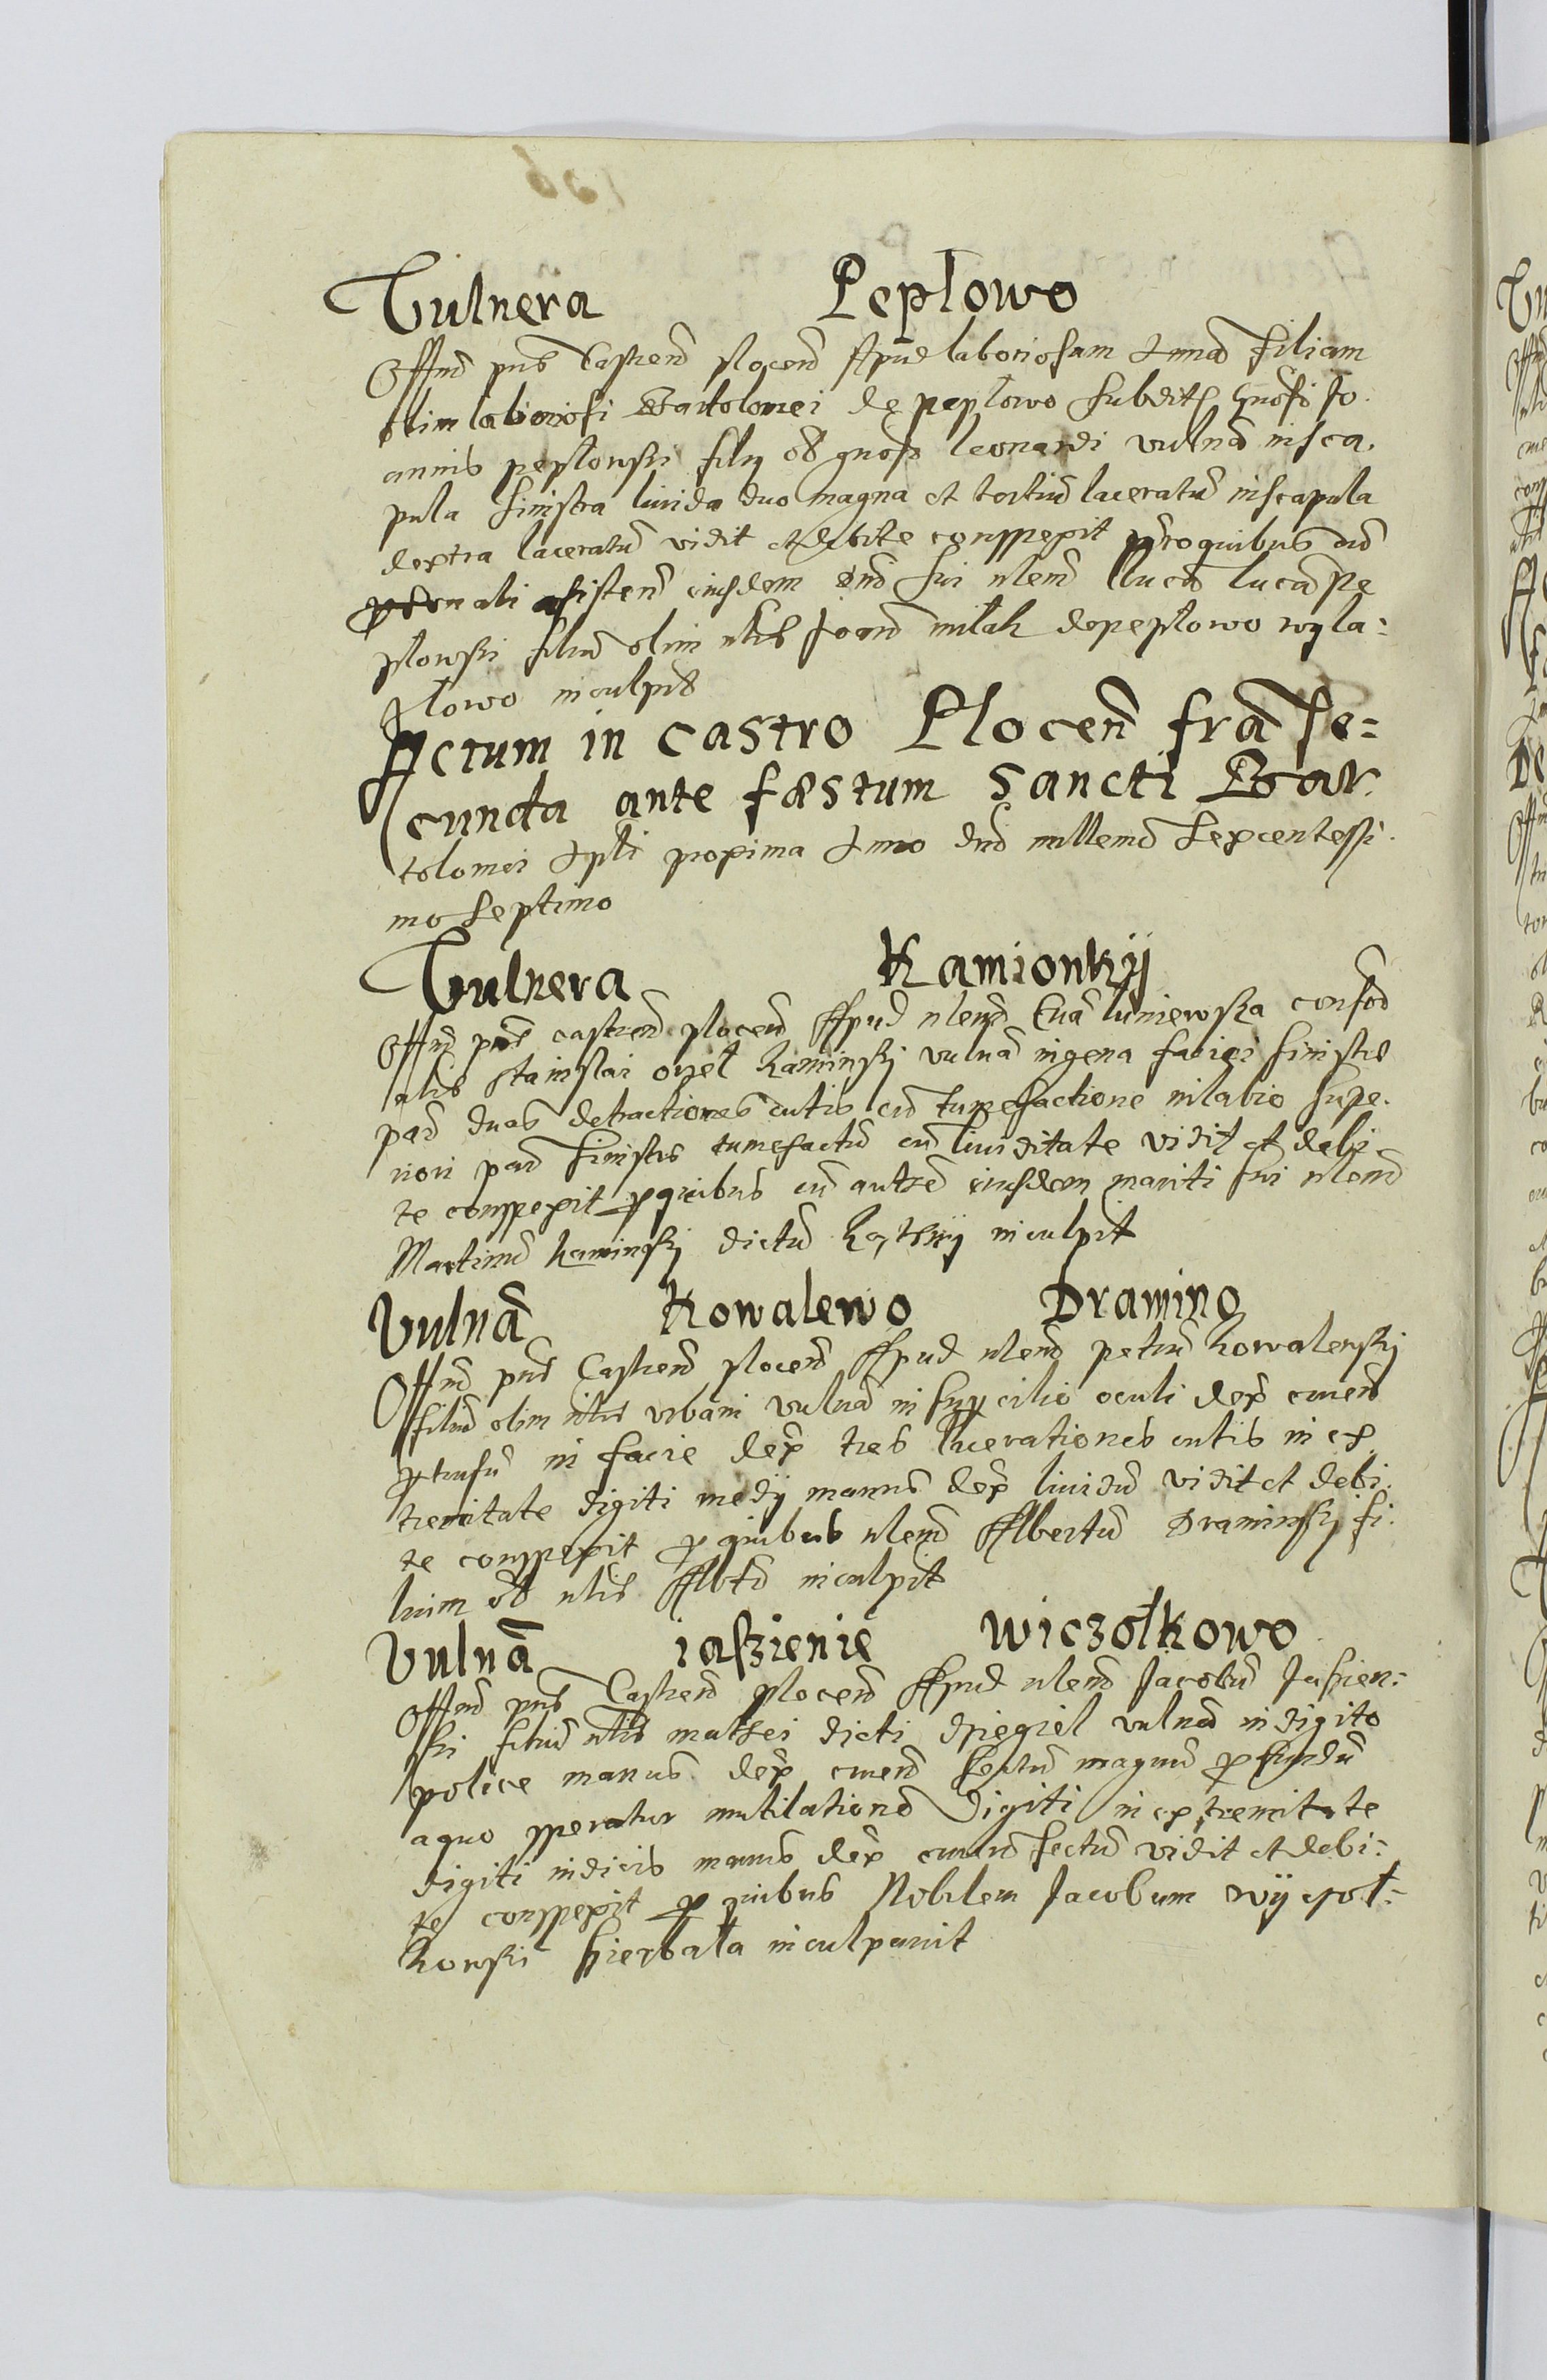 Vulnera Peplowo
Offm pns Castren plocen Apud laboriosam Annā filiam
olim laboriosi Bartolomei de peplowo subditę gnosi Jo
annis peplowski filij os gnosi leonardi vulnā in sca
pula sinistra livida duo magna et tertiū laceratū in scapula
dextra laceratū vidit et debite conspexit pro quibus
asisten eiusdem dnō sui nlem lucā pe
plowski filiū olim nlis Joan milak de peplowo wyla=
tlowo inculpit
Actum in Castro Plocen fra Se=
cunda ante fæstum Sancti Bar
tolomei Apli proxima Anno dnī millemō Sexcentessi
mo Septimo
Vulnera Kamionkij
Offm pns castren plocen Apud nlem Evā luniewska consor
alis Stanislai oyel kaminski vulnā in gena faciei sinistre
par duas detractiones cutis cū tumefactione in labio supe
riori par sinistre tumefactū cū lividitate vidit et debi
te conspexit p quibus cū autre eiusdem mariti sui nlem
Martinū kaminskij dictū inculpit
Vulnā Kowalewo Dramino
Offm pns Castren plocen Apud nlem petrū kowalewskij
filiū olim nlis vrbani vulnā in supcilio oculi dex cruen
ptusū in facie dex tres lacerationes cutis in ex
tremitate digiti medij manus dex lividū vidit et debi
te conspexit p quibus nlem Albertū Draminskij fi
lium os nlis Albti inculpit
Vulnā iaszienie Wiczołkowo
Offm pns Castren plocen Apud nlem Jacobū Jasien=
ski filiū nlis mathei dicti dziegiel vulnā in digito
police manus dex cruen sectū magnū p fundū
a quo speratur mutilationē digiti in extremitate
digiti indicis manus dex cruen sectū vidit et debi=
te conspexit p quibus Nobilem Jacobum wijczol=
kowski sierbala inculpavit